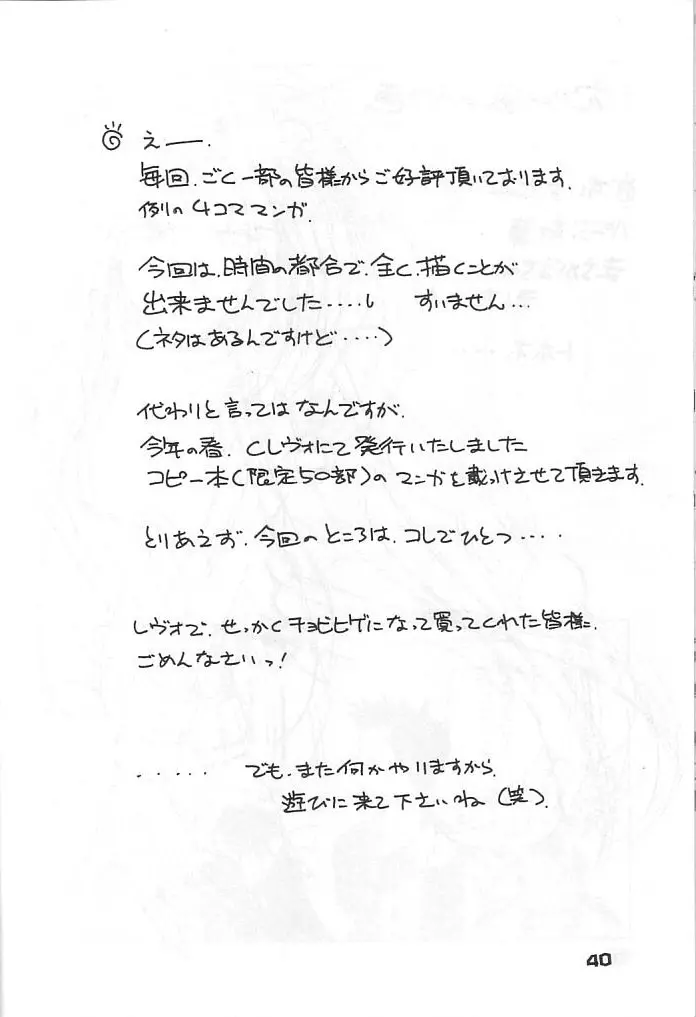 えー.
毎回.ごく一部の皆様からご好評頂いております.
例の4コママンガ.
今回は.時間の都合で.全く.描くことが
出来ませんでした・・・・し すいません・・・
(ネタはあるんですけど・・・・)
代わりと言ってはなんですが.
今年の春.Cレヴォにて発行いたしました
コピー本(限定50部)のマンガを載っけさせて頂きます.
とりあえず.今回のところは.コレでひとつ・・・・
レヴォで.せっかくチョビヒゲになって買ってくれた皆様.
ごめんなさいっ!
・・・・・ でも.また何かやりますから.
遊びに来て下さいね(笑).
40